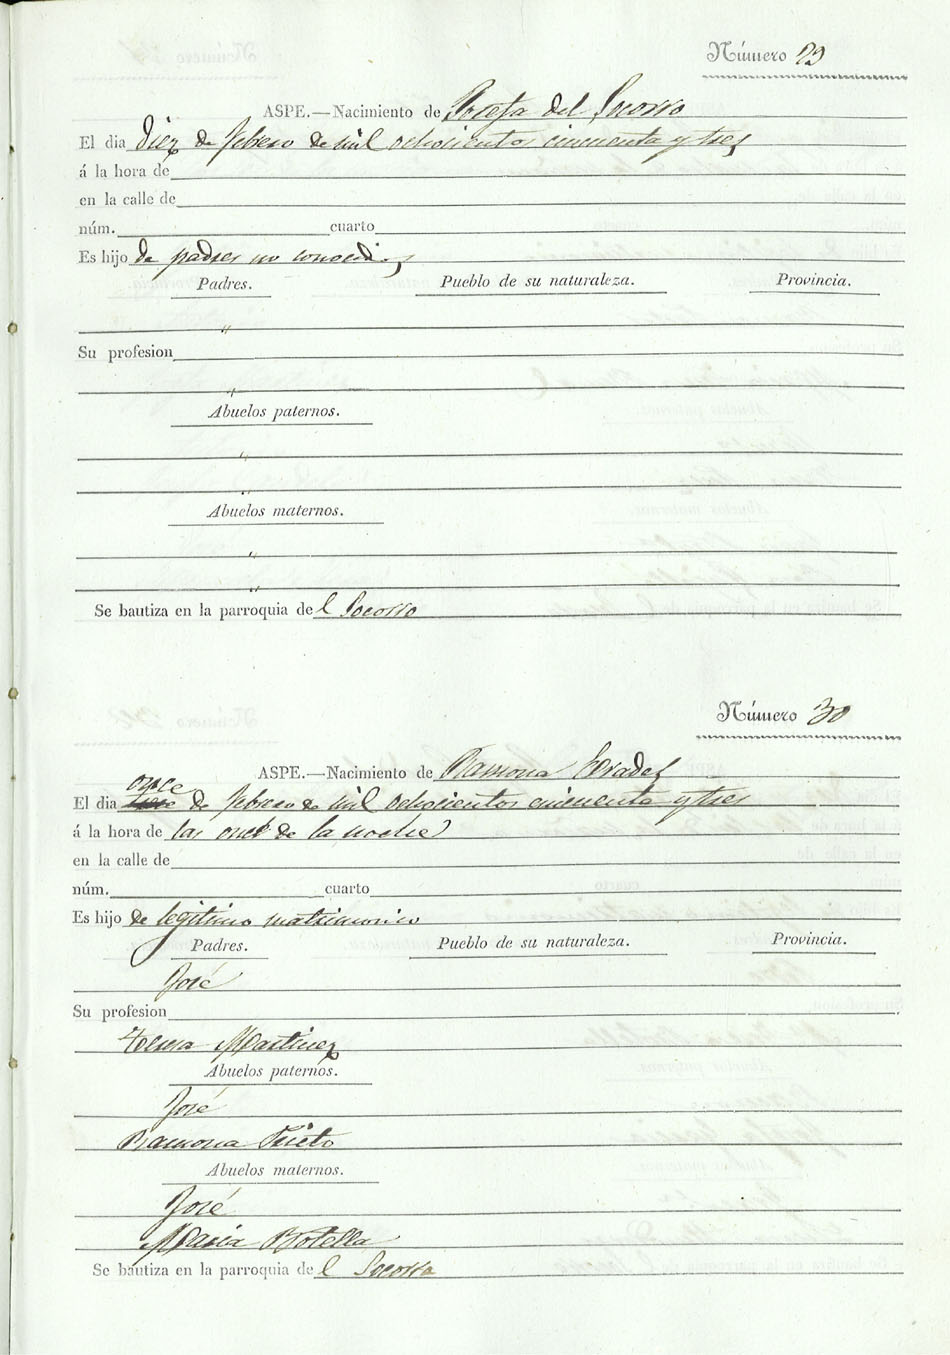 Número 29
ASPE.—Nacimiento de Josefa del Socorro
El dia diez de febrero de mil ochocientos cincuenta y tres
á la hora de
en la calle de
núm. cuarto
Es hijo de padres no conocidos
Padres. Pueblo de su naturaleza. Provincia.
"
Su profesion
"
Abuelos paternos.
"
"
Abuelos maternos.
"
"
Se bautiza en la parroquia del Socorro
Número 30
ASPE.—Nacimiento de Ramona
once
El dia de febrero de mil ochocientos cincuenta y tres
á la hora de las once de la noche
en la calle de
núm. cuarto
Es hijo de legitimo matrimonio
Padres. Pueblo de su naturaleza. Provincia.
José
Su profesion
Teresa Martinez
Abuelos paternos.
José
Ramona Prieto
Abuelos maternos.
José
Maria Botella
Se bautiza en la parroquia del Socorro